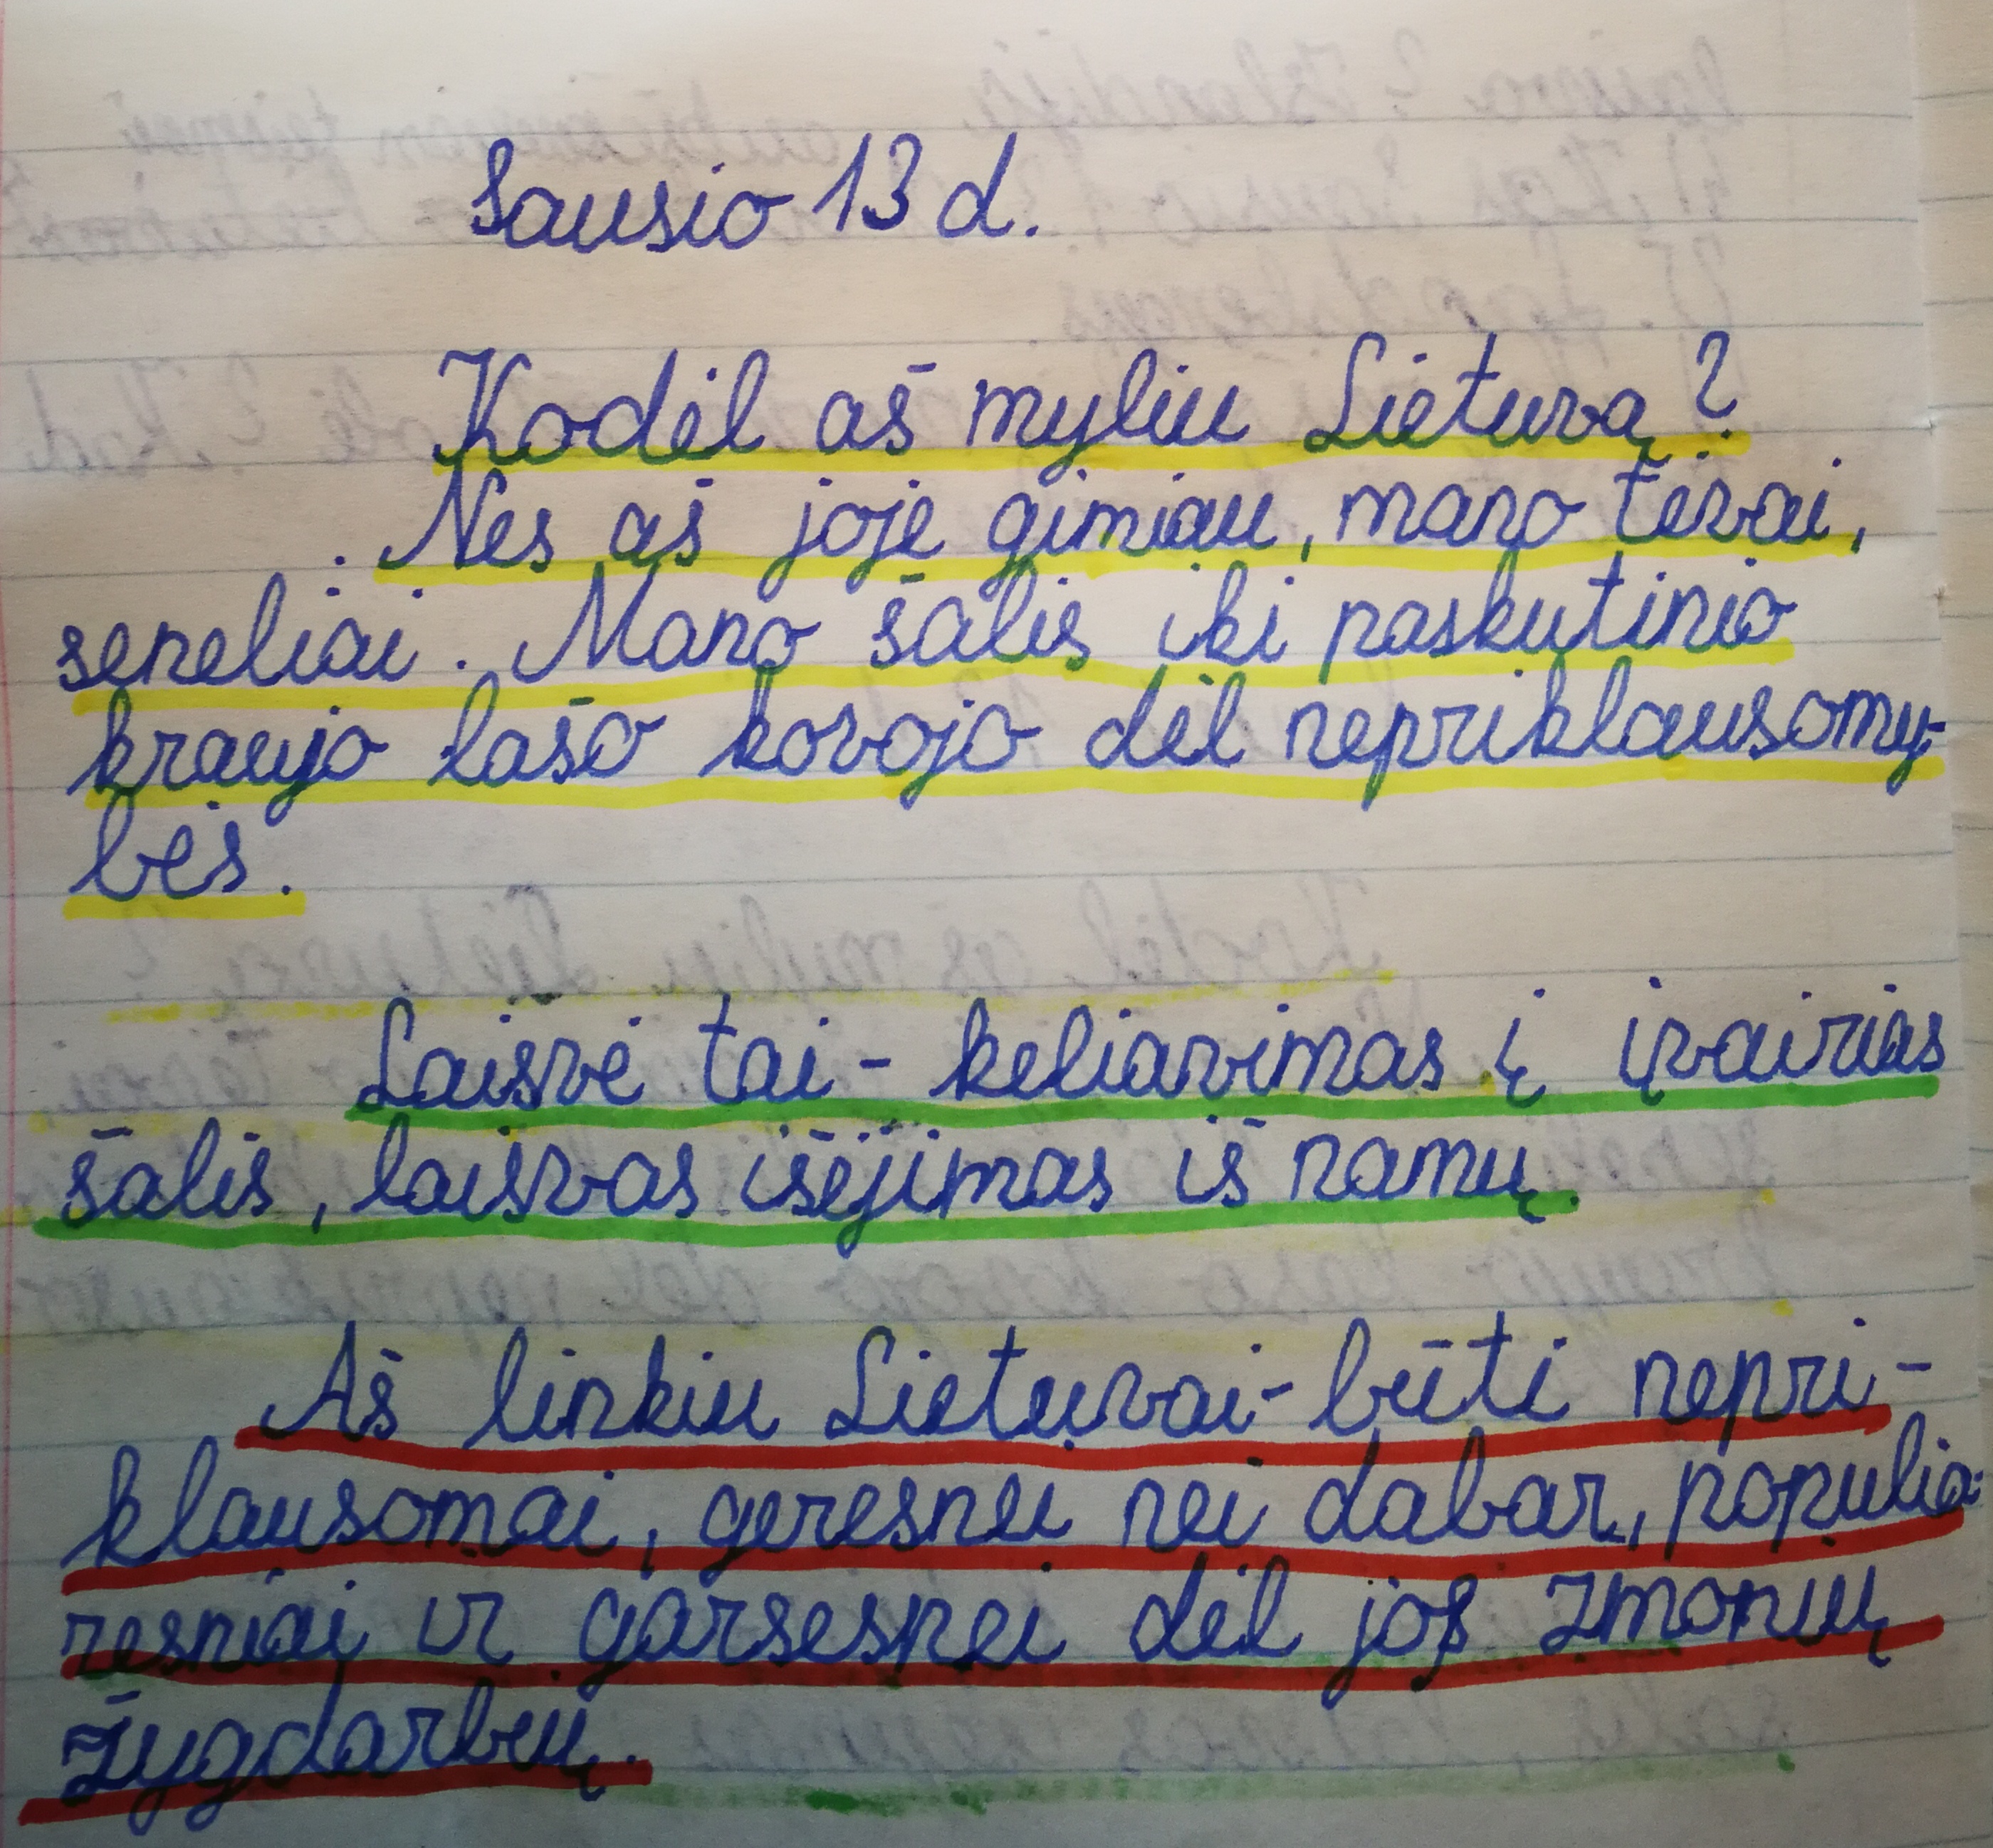 Sausio 13 d.
Kodėl aš myliu Lietuvą?
Nes aš joje gimiau, mano tėvai,
seneliai. Mano šalis iki paskutinio
kraujo lašo kovojo dėl nepriklausomy-
bės.
Laisvė tai - keliavimas į įvairias
šalis, laisvas išėjimas iš namų.
Aš linkiu Lietuvai - būti nepri-
klausomai, geresnei nei dabar, populia-
resniai ir garsesnei dėl jos žmonių
žygdarbių.